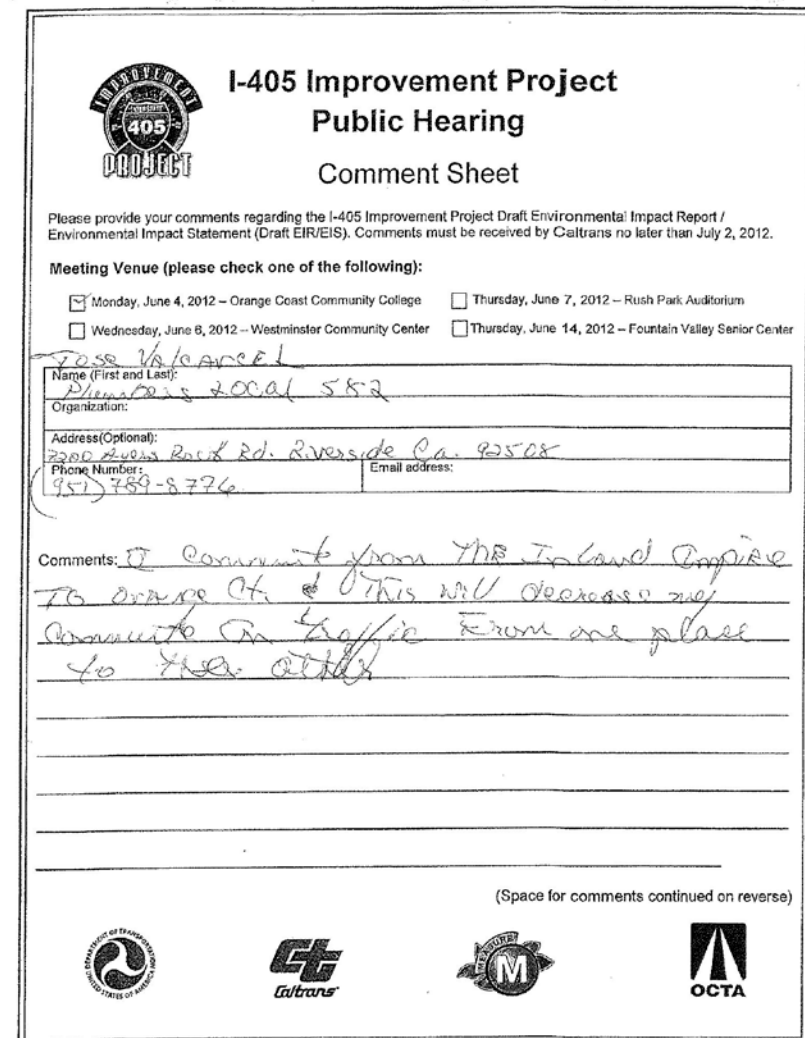 IMPROVEMENT
405
PROJECT
I-405 Improvement Project
Public Hearing
Comment Sheet
Please provide your comments regarding the I-405 Improvement Project Draft Environmental Impact Report /
Environmental Impact Statement (Draft EIR/EIS). Comments must be received by Caltrans no later than July 2, 2012.
Meeting Venue (please check one of the following):
Monday, June 4, 2012 – Orange Coast Community College
Thursday, June 7, 2012 – Rush Park Auditorium
Wednesday, June 6, 2012 – Westminster Community Center
Thursday, June 14, 2012 – Fountain Valley Senior Center
Jose Valcarcel
Name (First and Last):
Local 582
Organization:
Address(Optional):
Rd. Riverside Ca. 92508
Phone Number:
Email address:
(951) 789-8776
Comments: I Commut from The Inland Empire
To Orange Ct. & This will decrease my
Commute in traffic From one place
to the other
(Space for comments continued on reverse)
DEPARTMENT OF TRANSPORTATION
UNITED STATES OF AMERICA
Caltrans
MEASURE
M
OCTA